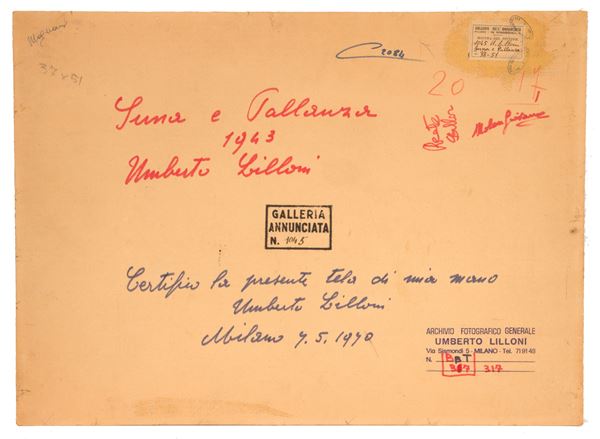 37 x 51
C 2084
1945
38-51
20
Suna e Pallanza
1943
Umberto Lilloni
GALLERIA
ANNUNCIATA
N. 1045
Certifico la presente tela di mia mano
Umberto Lilloni
Milano 7.5.1970
ARCHIVIO FOTOGRAFICO GENERALE
UMBERTO LILLONI
Via Sismondi 5 - MILANO - Tel. 719149
N.
317